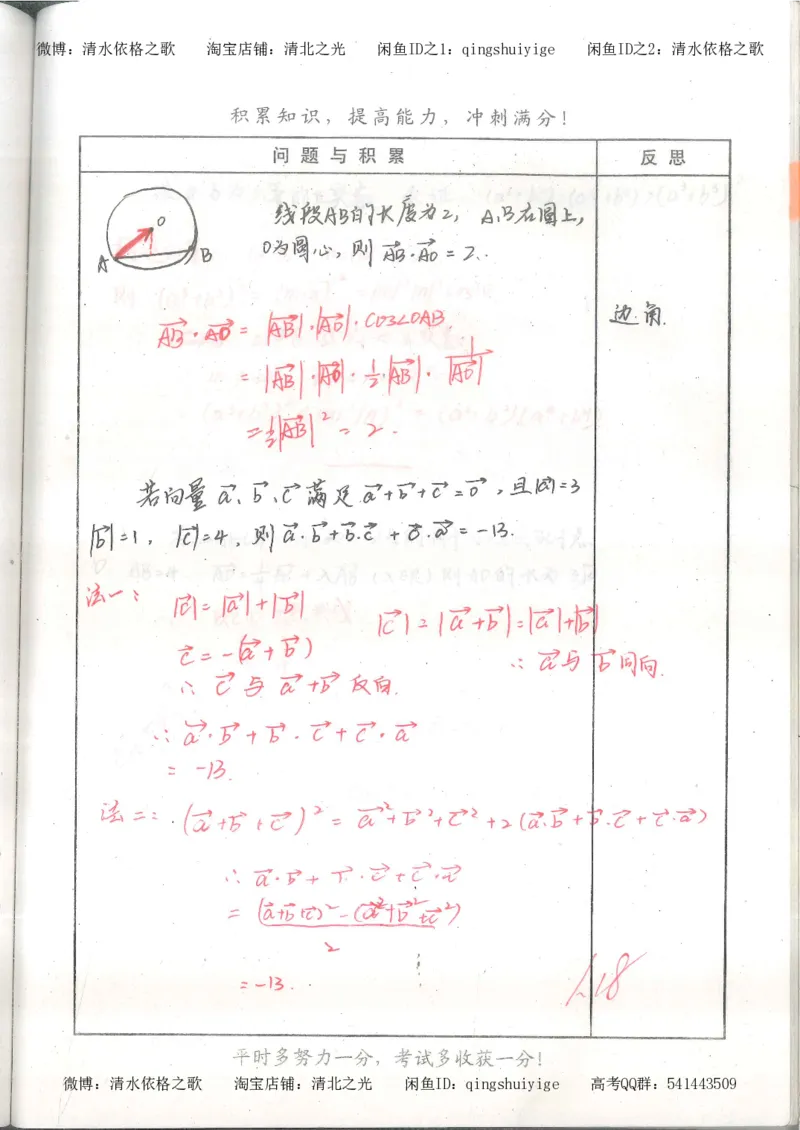 微博：清水依格之歌 淘宝店铺：清北之光 闲鱼ID之1：qingshuiyige 闲鱼ID之2：清水依格之歌
积累知识，提高能力，冲刺满分！
问题与积累 反思
线段AB的长度为2，A,B在圆上，
O为圆心，则 AB→·AO→ = 2.
O
A B
AB→·AO→ = |AB→|·|AO→|·cos∠OAB. 边.角.
= |AB→|·|AO→|·1/2·|AB→|·1/|AO→|
= 1/2|AB→|² = 2.
若向量 a→、b→、c→ 满足 a→+b→+c→=0→，且|a→|=3
|b→|=1，|c→|=4，则 a→·b→+b→·c→+c→·a→=-13.
法一：|c→|=|a→|+|b→| |c→|=|a→+b→|=|a→|+|b→|
c→=-(a→+b→) ∴ a→与b→同向.
∴ c→与a→+b→反向.
∴ a→·b→+b→·c→+c→·a→
= -13.
法二：(a→+b→+c→)² = a→²+b→²+c→²+2(a→·b→+b→·c→+c→·a→)
∴ a→·b→+b→·c→+c→·a→
= ((a→+b→+c→)²-(a→²+b→²+c→²))/2
= -13.
平时多努力一分，考试多收获一分！
微博：清水依格之歌 淘宝店铺：清北之光 闲鱼ID：qingshuiyige 高考QQ群：541443509